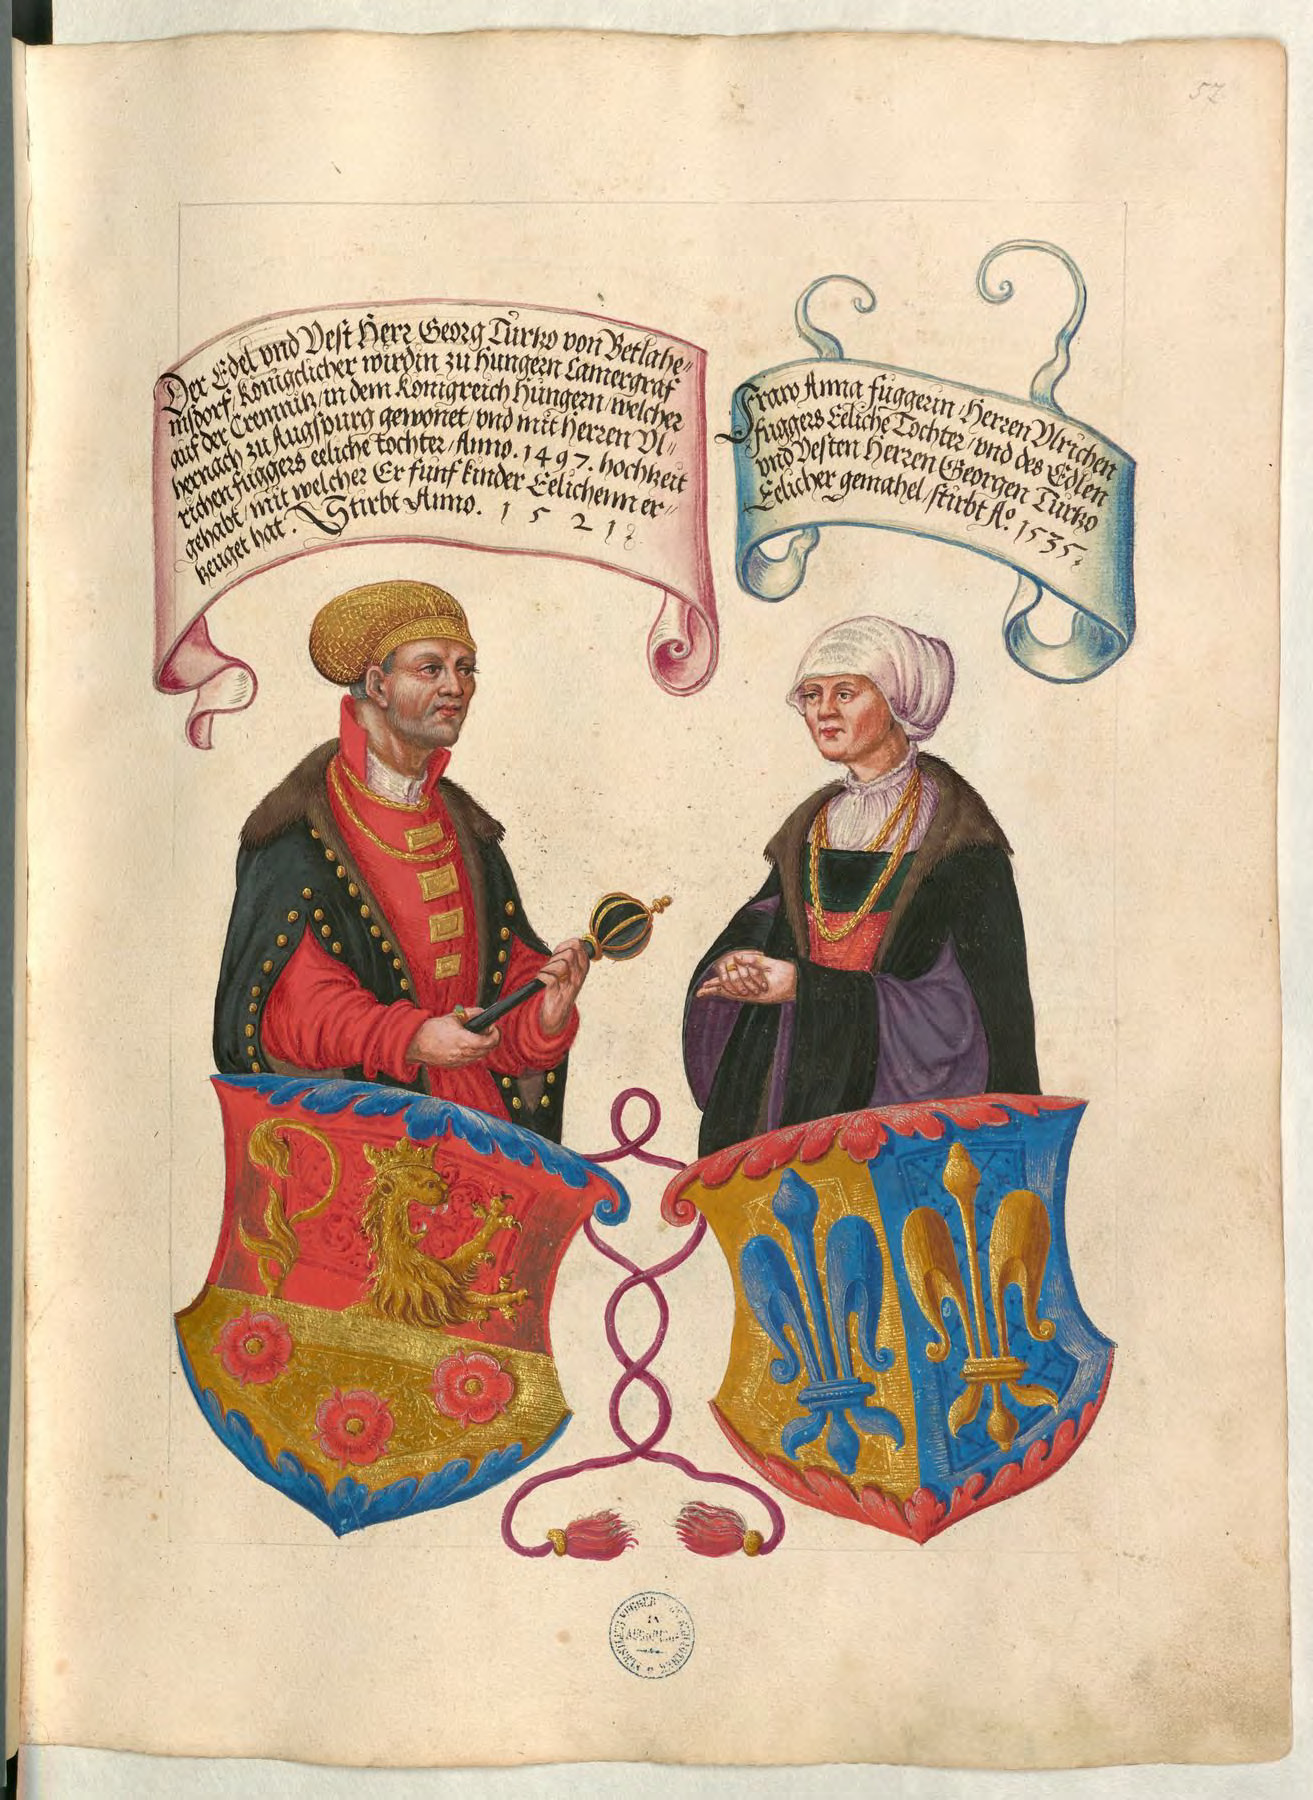 57
Der Edel vnd Vest Herr Georg Turtzo von Betlahe„
msdorf / Koniglicher wirdin zu Hungern Camergraf
auf der Cremnitz / in dem Konigreich Hungern / welcher
hernach zu Augspurg gewonet / vnd mit Herren Vl„
richen fuggers eeliche tochter / Anno. 1497. hochzeit
gehabt / mit welcher Er funf kinder Eelichenn er„
zeuget hat. Stirbt Anno. 1521
Fraw Anna fuggerin / Herren Vlrichen
fuggers Eeliche Tochter / vnd des Edlen
vnd Vesten Herren Georgen Turtzo
Eelicher gemahel / stirbt Aº. 1535